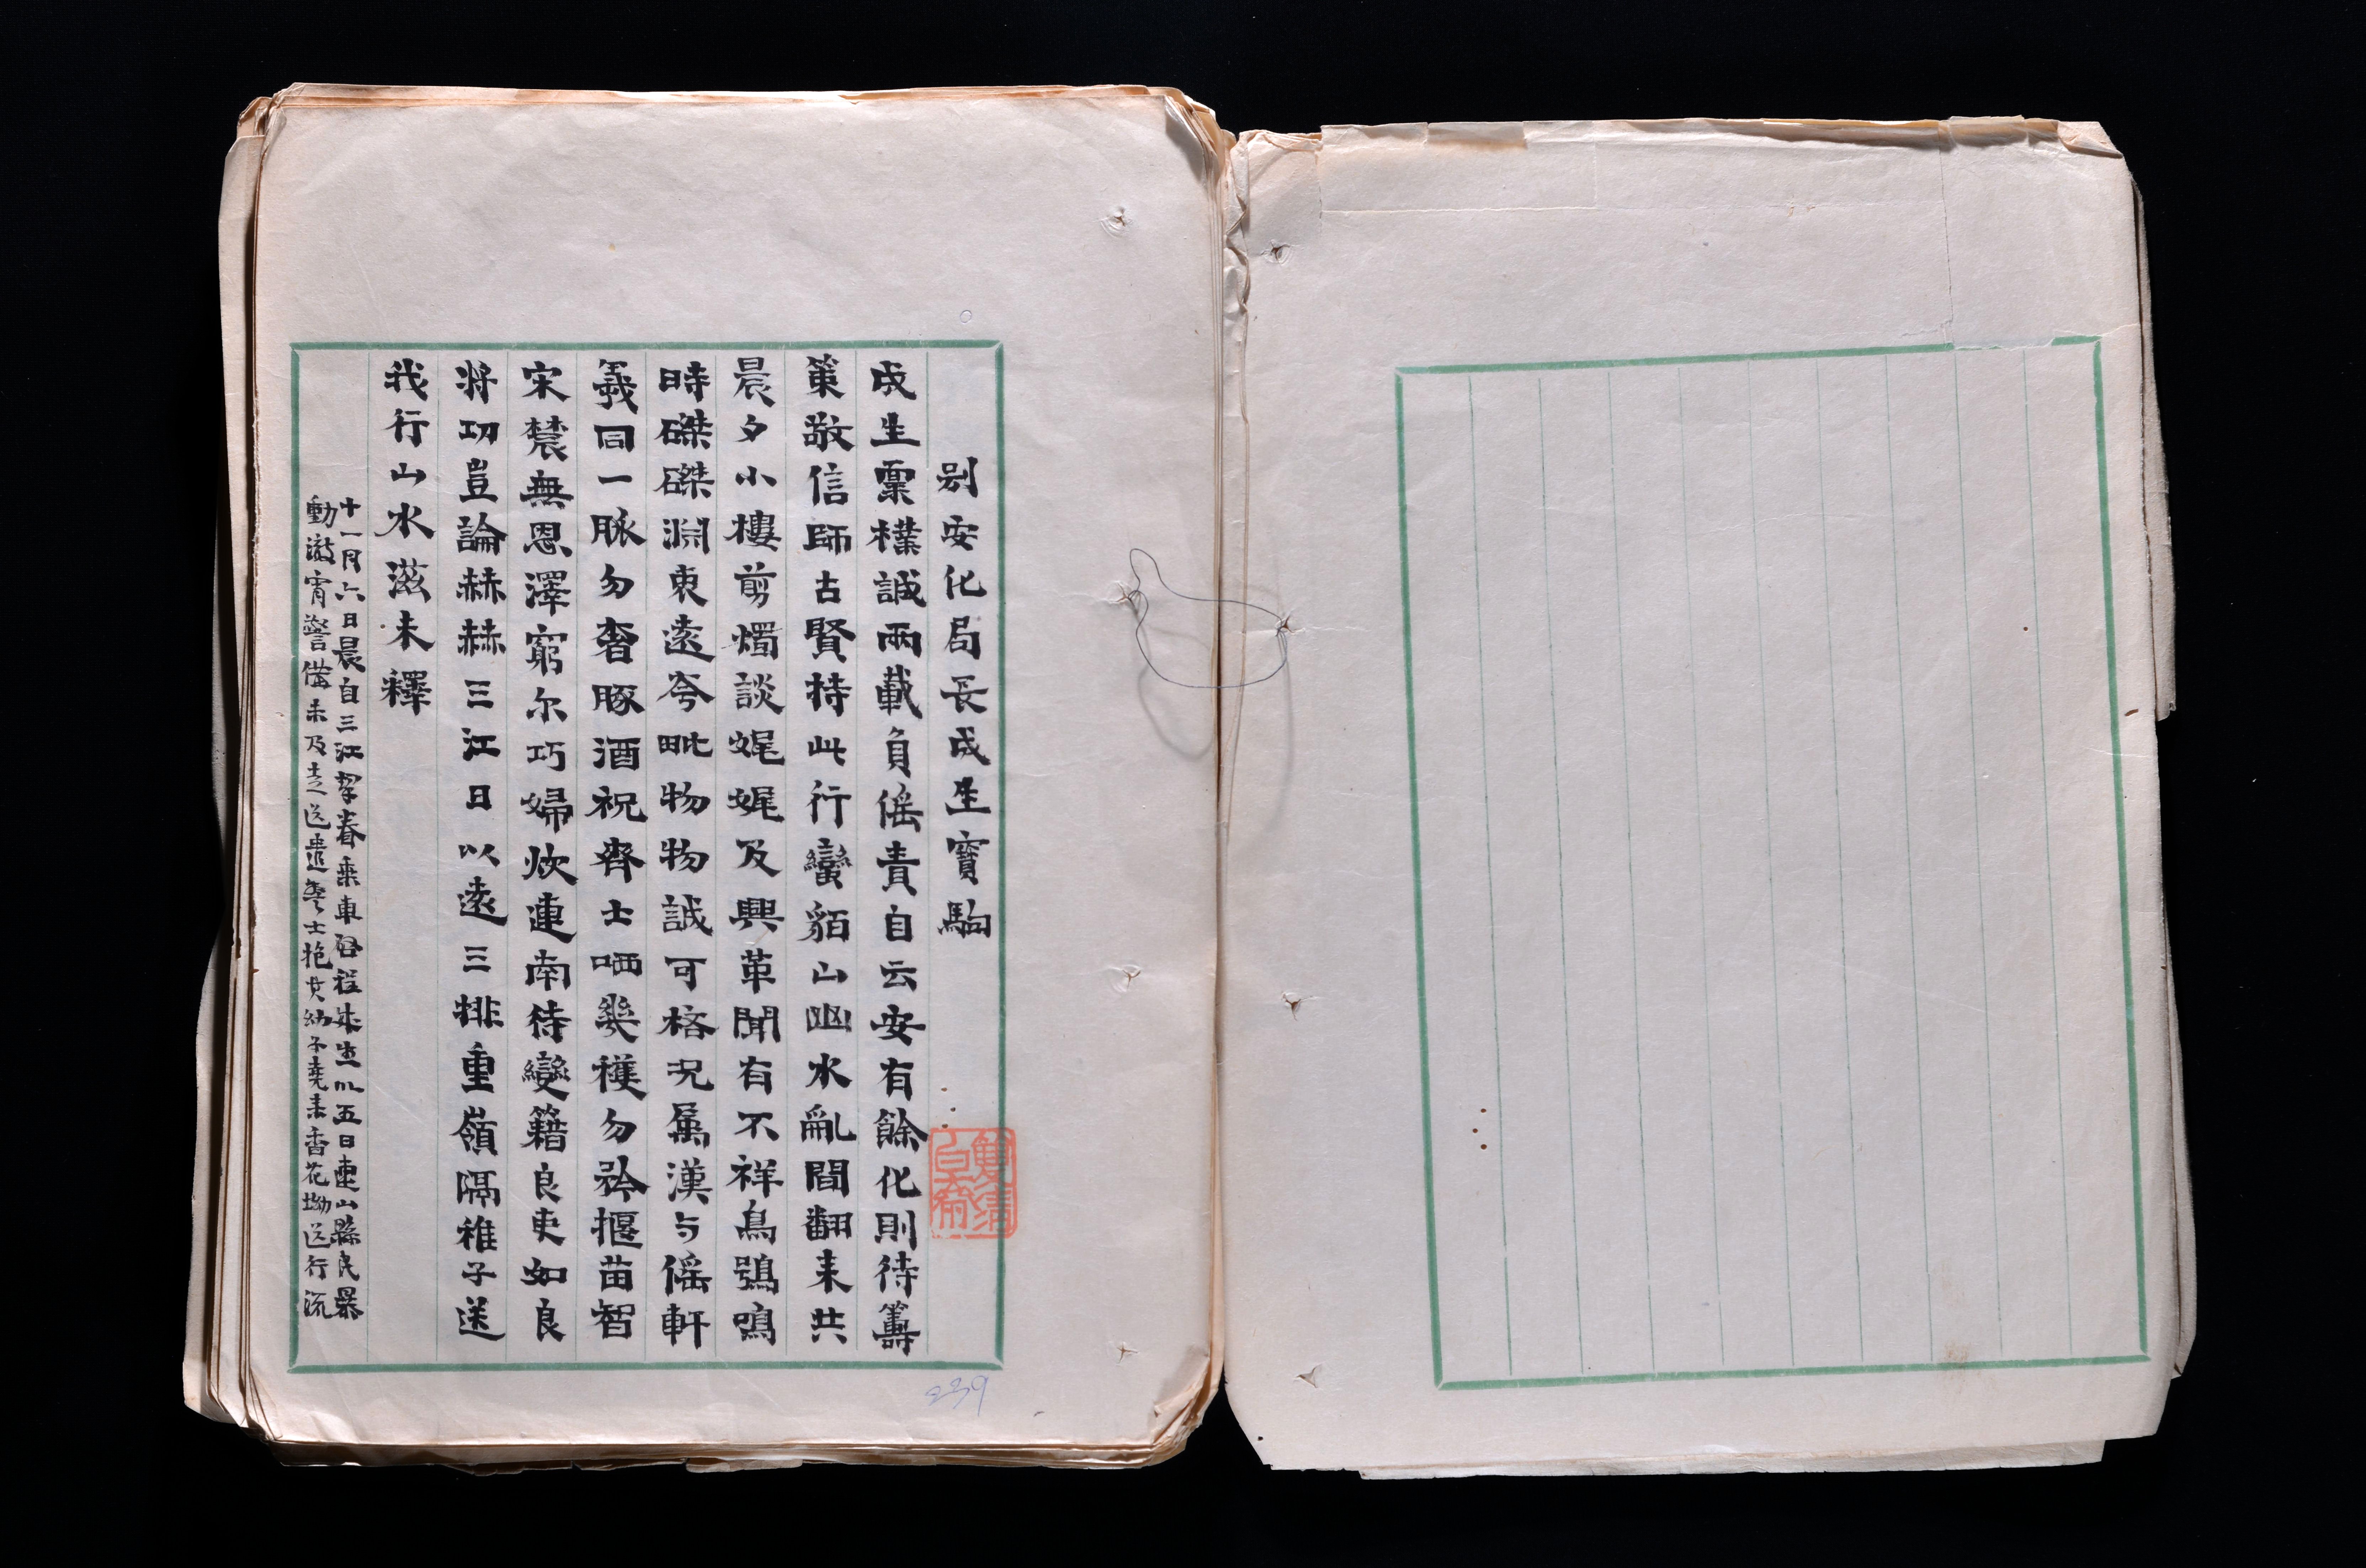 別安化局長成生寶駒
成生稟樸誠兩載負傜責自云安有餘化則待籌
策敬信師古賢持此行蠻貊山幽水亂間翻来共
晨夕小樓剪燭談娓娓及興革聞有不祥鳥鴞鳴
時磔磔淵衷遠夸毗物物誠可格況属漢与傜軒
羲同一脉勿奢豚酒祝齊士哂幾穫勿矜揠苗智
宋襄無恩澤窮尔巧婦炊連南待變籍良吏如良
将功豈論赫赫三江日以遠三排重嶺隔稚子送
我行山水滋未釋
十一月六日晨自三江挈眷乗車啓程成生以五日連山縣民暴
動澈宵警備未及走送遣粤士抱其幼子堯来香花坳送行流
雙清
白齋
239